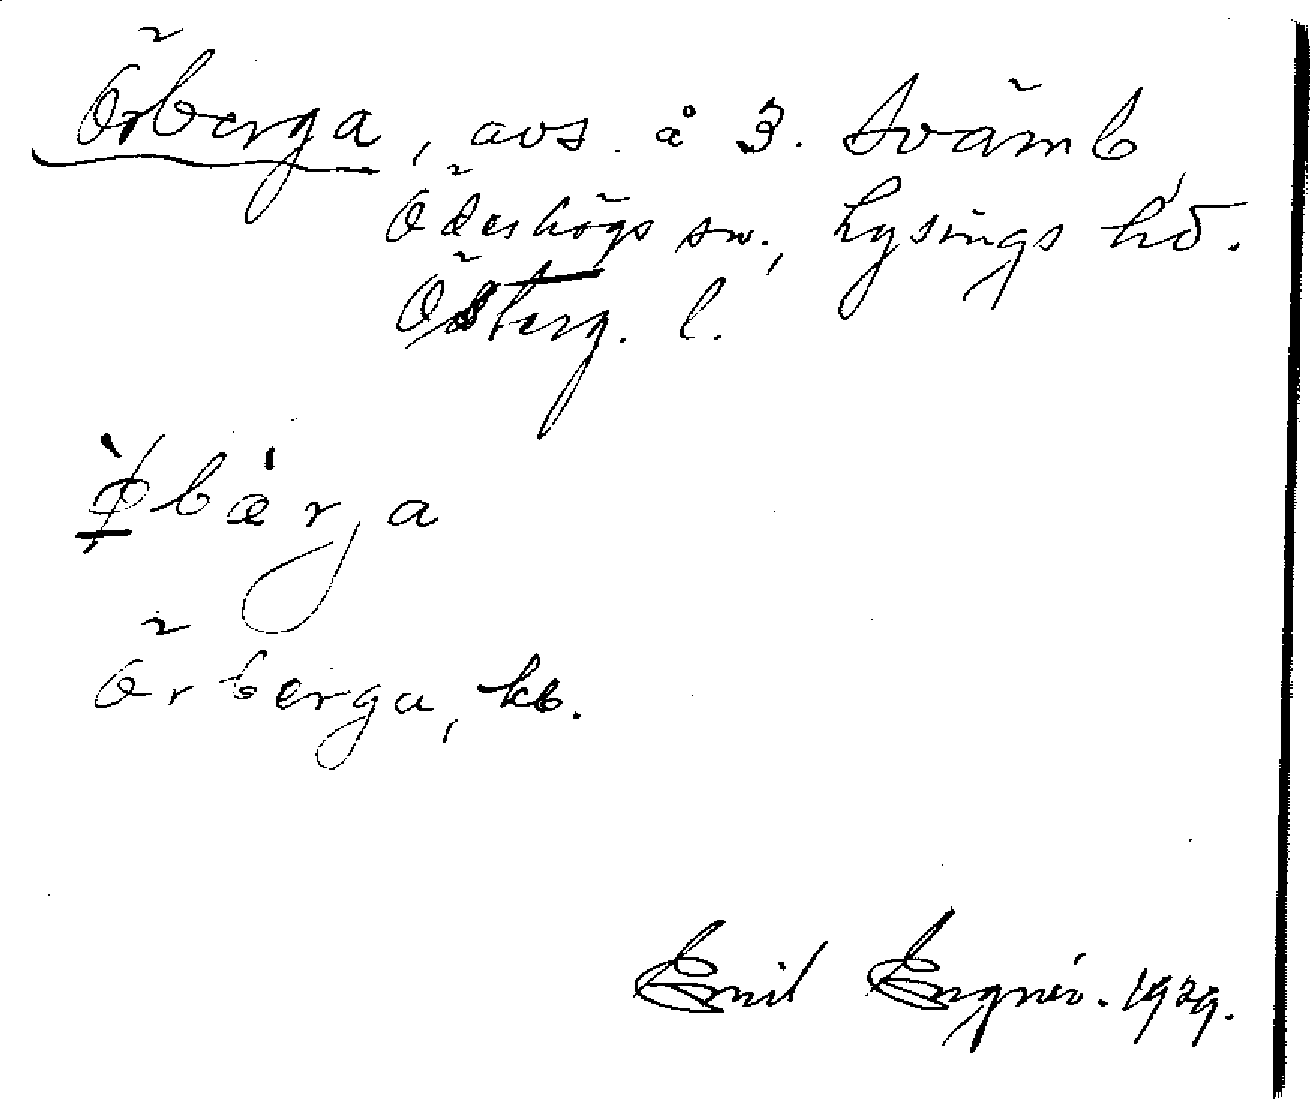 Örberga, avs. å 3. Svämb
Ödeshögs sn., Lysings hd.
Österg. l.
Örberga, kb.
Emil 1929.